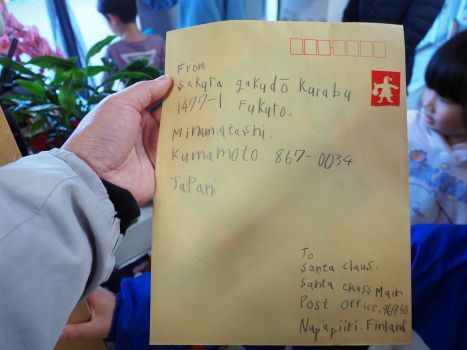 From
Sakura gakudō Kurabu
1477-1 Fukuro.
Minamatashi.
Kumamoto 867-0034
Japan
To
Santa Claus.
Santa Claus's Main
Post Office, 96930
Napapiiri. Finland